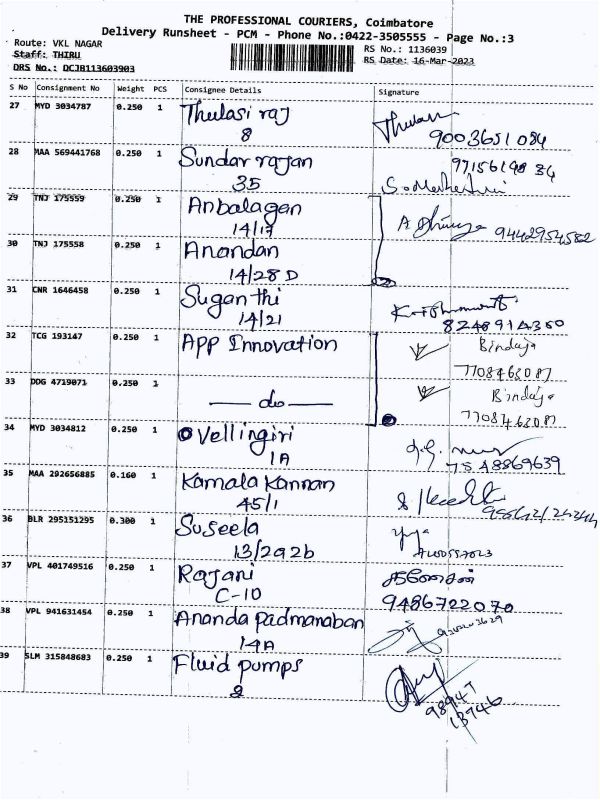 THE PROFESSIONAL COURIERS, Coimbatore
Delivery Runsheet - PCM - Phone No.:0422-3505555 - Page No.:3
Route: VKL NAGAR
RS No.: 1136039
Staff: THIRU
RS Date: 16-Mar-2023
DRS No.: DCJB113603903
S No Consignment No Weight PCS Consignee Details Signature
27 MYD 3034787 0.250 1 Thulasi raj
8
9003651084
28 MAA 569441768 0.250 1 Sundar rajan
35
29 TNJ 175559 0.250 1 Anbalagan
14/17
9442954582
30 TNJ 175558 0.250 1 Anandan
14/28 D
31 CNR 1646458 0.250 1 Suganthi
14/21
8248914360
32 TCG 193147 0.250 1 APP Innovation Binduja
7708463087
33 DDG 4719071 0.250 1 — do — Binduja
7708463087
34 MYD 3034812 0.250 1 Vellingiri
1A
7548869639
35 MAA 292656885 0.160 1 Kamala Kannan
45/1
36 BLR 295151295 0.300 1 Suseela
13/292b
37 VPL 401749516 0.250 1 Rajani
C-10
9486722070
38 VPL 941631454 0.250 1 Ananda Padmanaban
14A
39 SLM 315848683 0.250 1 Fluid pumps
2
98947
13746